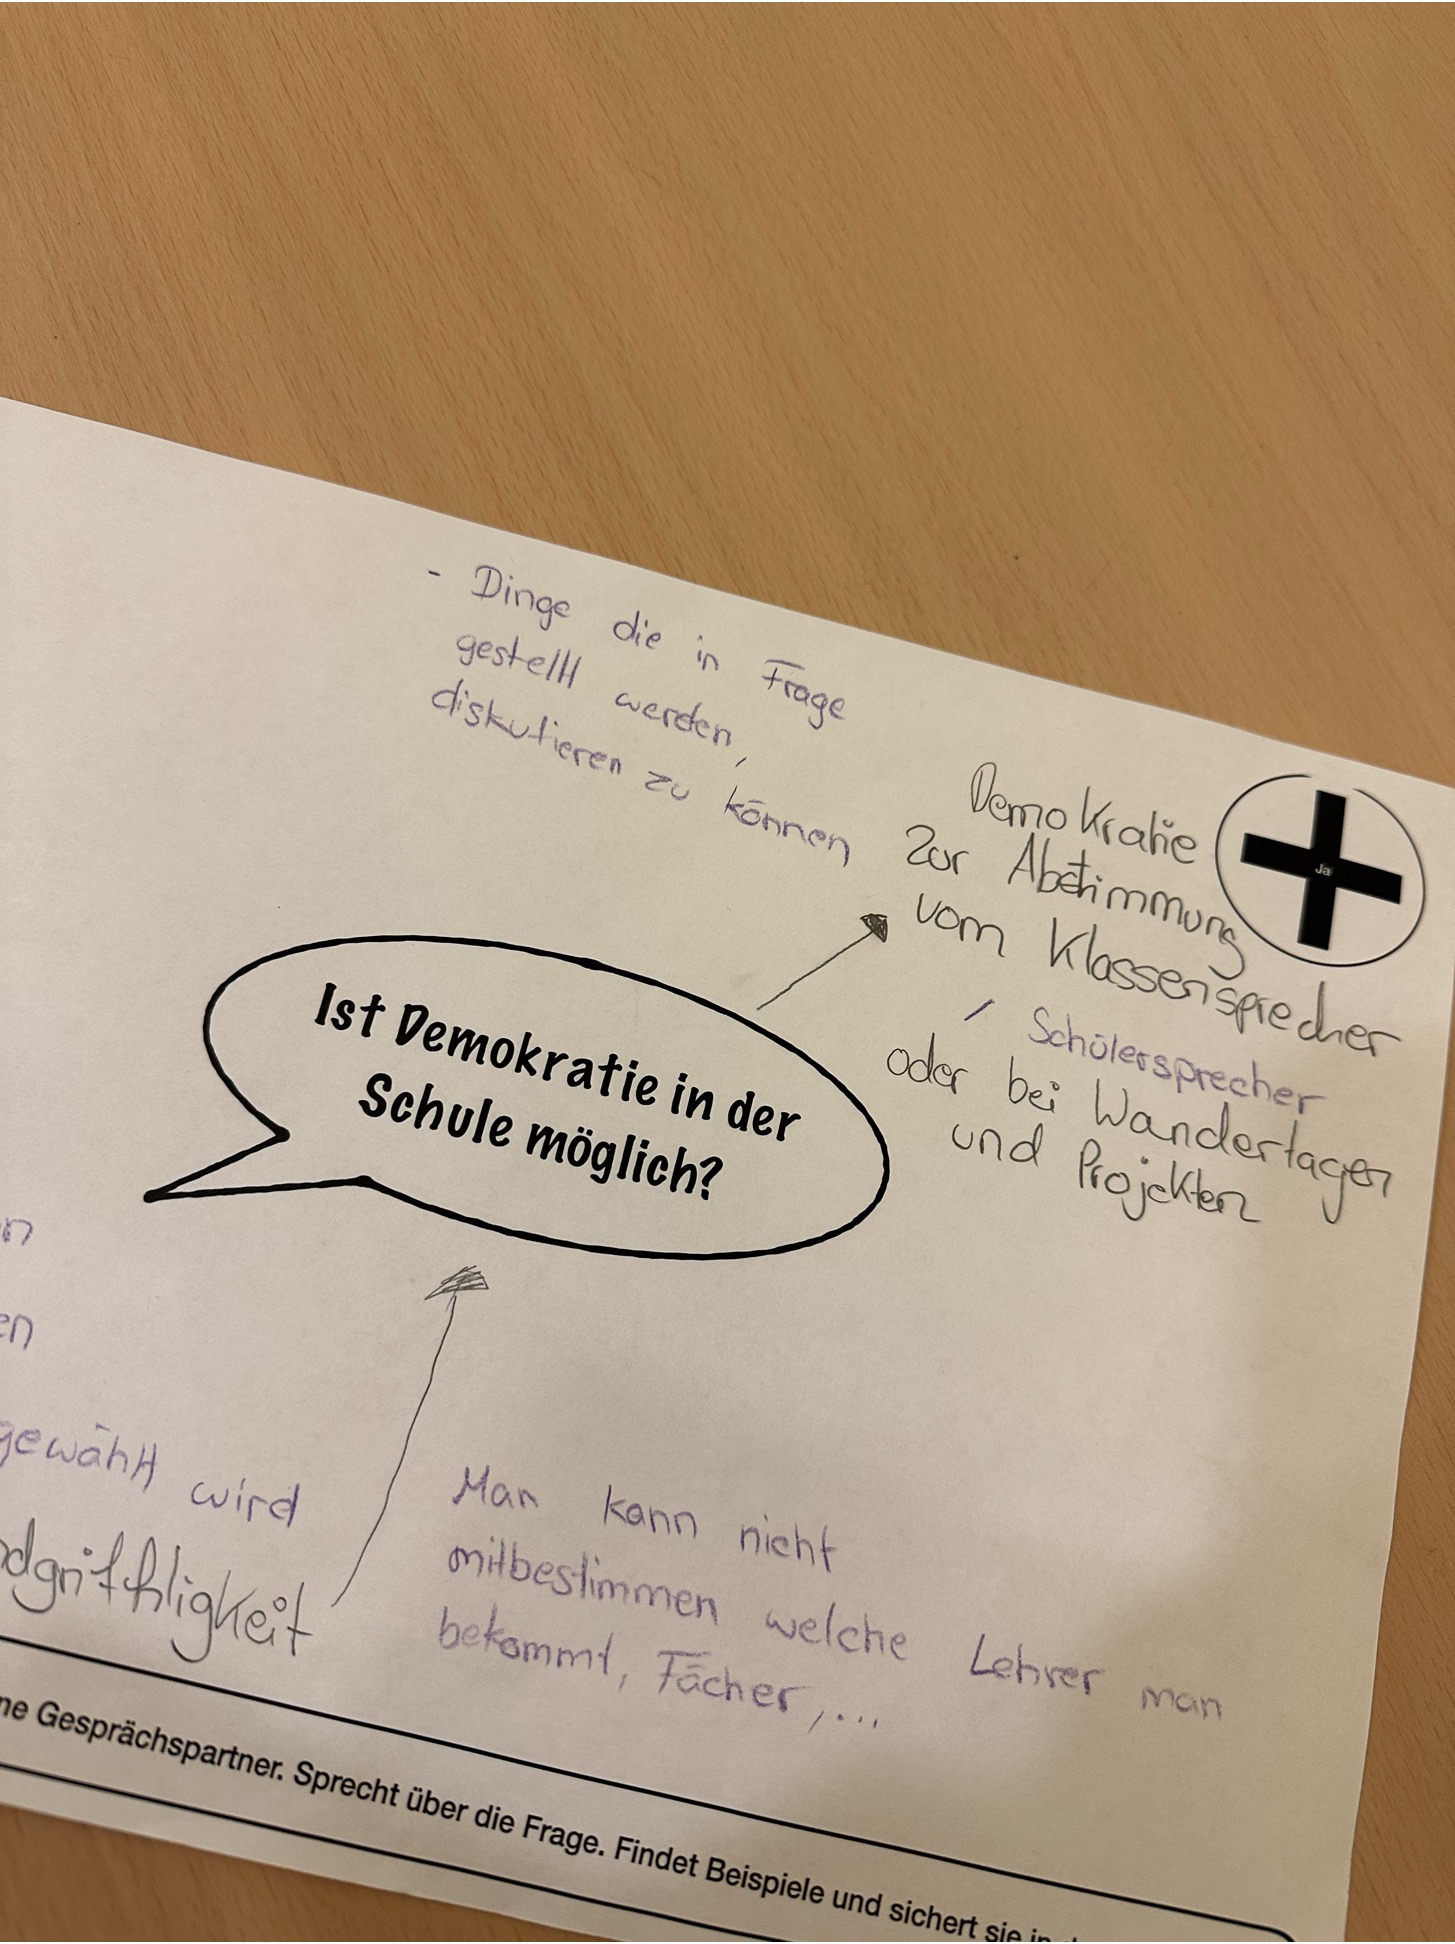 - Dinge die in Frage
gestellt werden,
diskutieren zu können
Demokratie
zur Abstimmung
vom Klassensprecher
/ Schülersprecher
oder bei Wandertagen
und Projekten
Ja
Ist Demokratie in der
Schule möglich?
gewählt wird
Man kann nicht
mitbestimmen welche Lehrer man
bekommt, Fächer,...
ne Gesprächspartner. Sprecht über die Frage. Findet Beispiele und sichert sie in